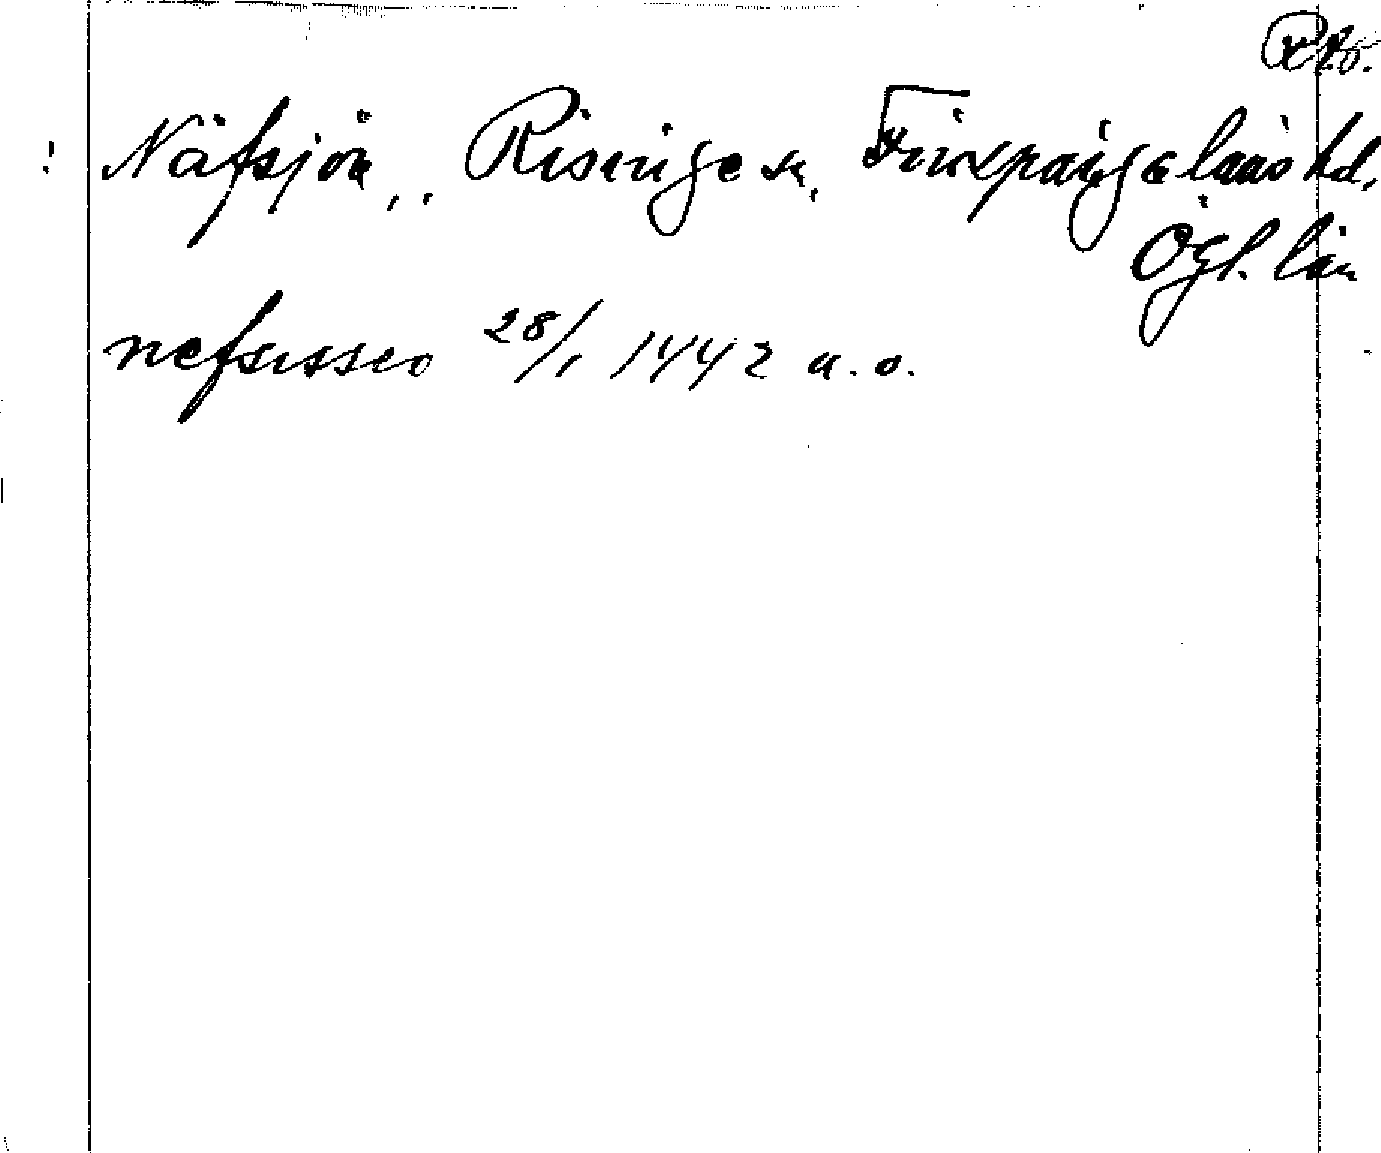 Näfsjön, Risinge sn, Finspångaläns hd,
Ögl. län
nefsesseo 28/1 1442 a.o.